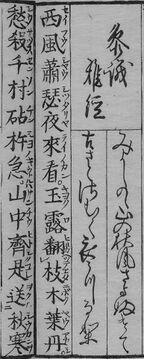 参議
雅経
みよしのゝ山の秋風さよ更て
古さとさむく衣うつ也
西風蕭瑟夜來看。玉露翻枝木葉丹
愁殺千村砧杵急。山中齊是送秋寒